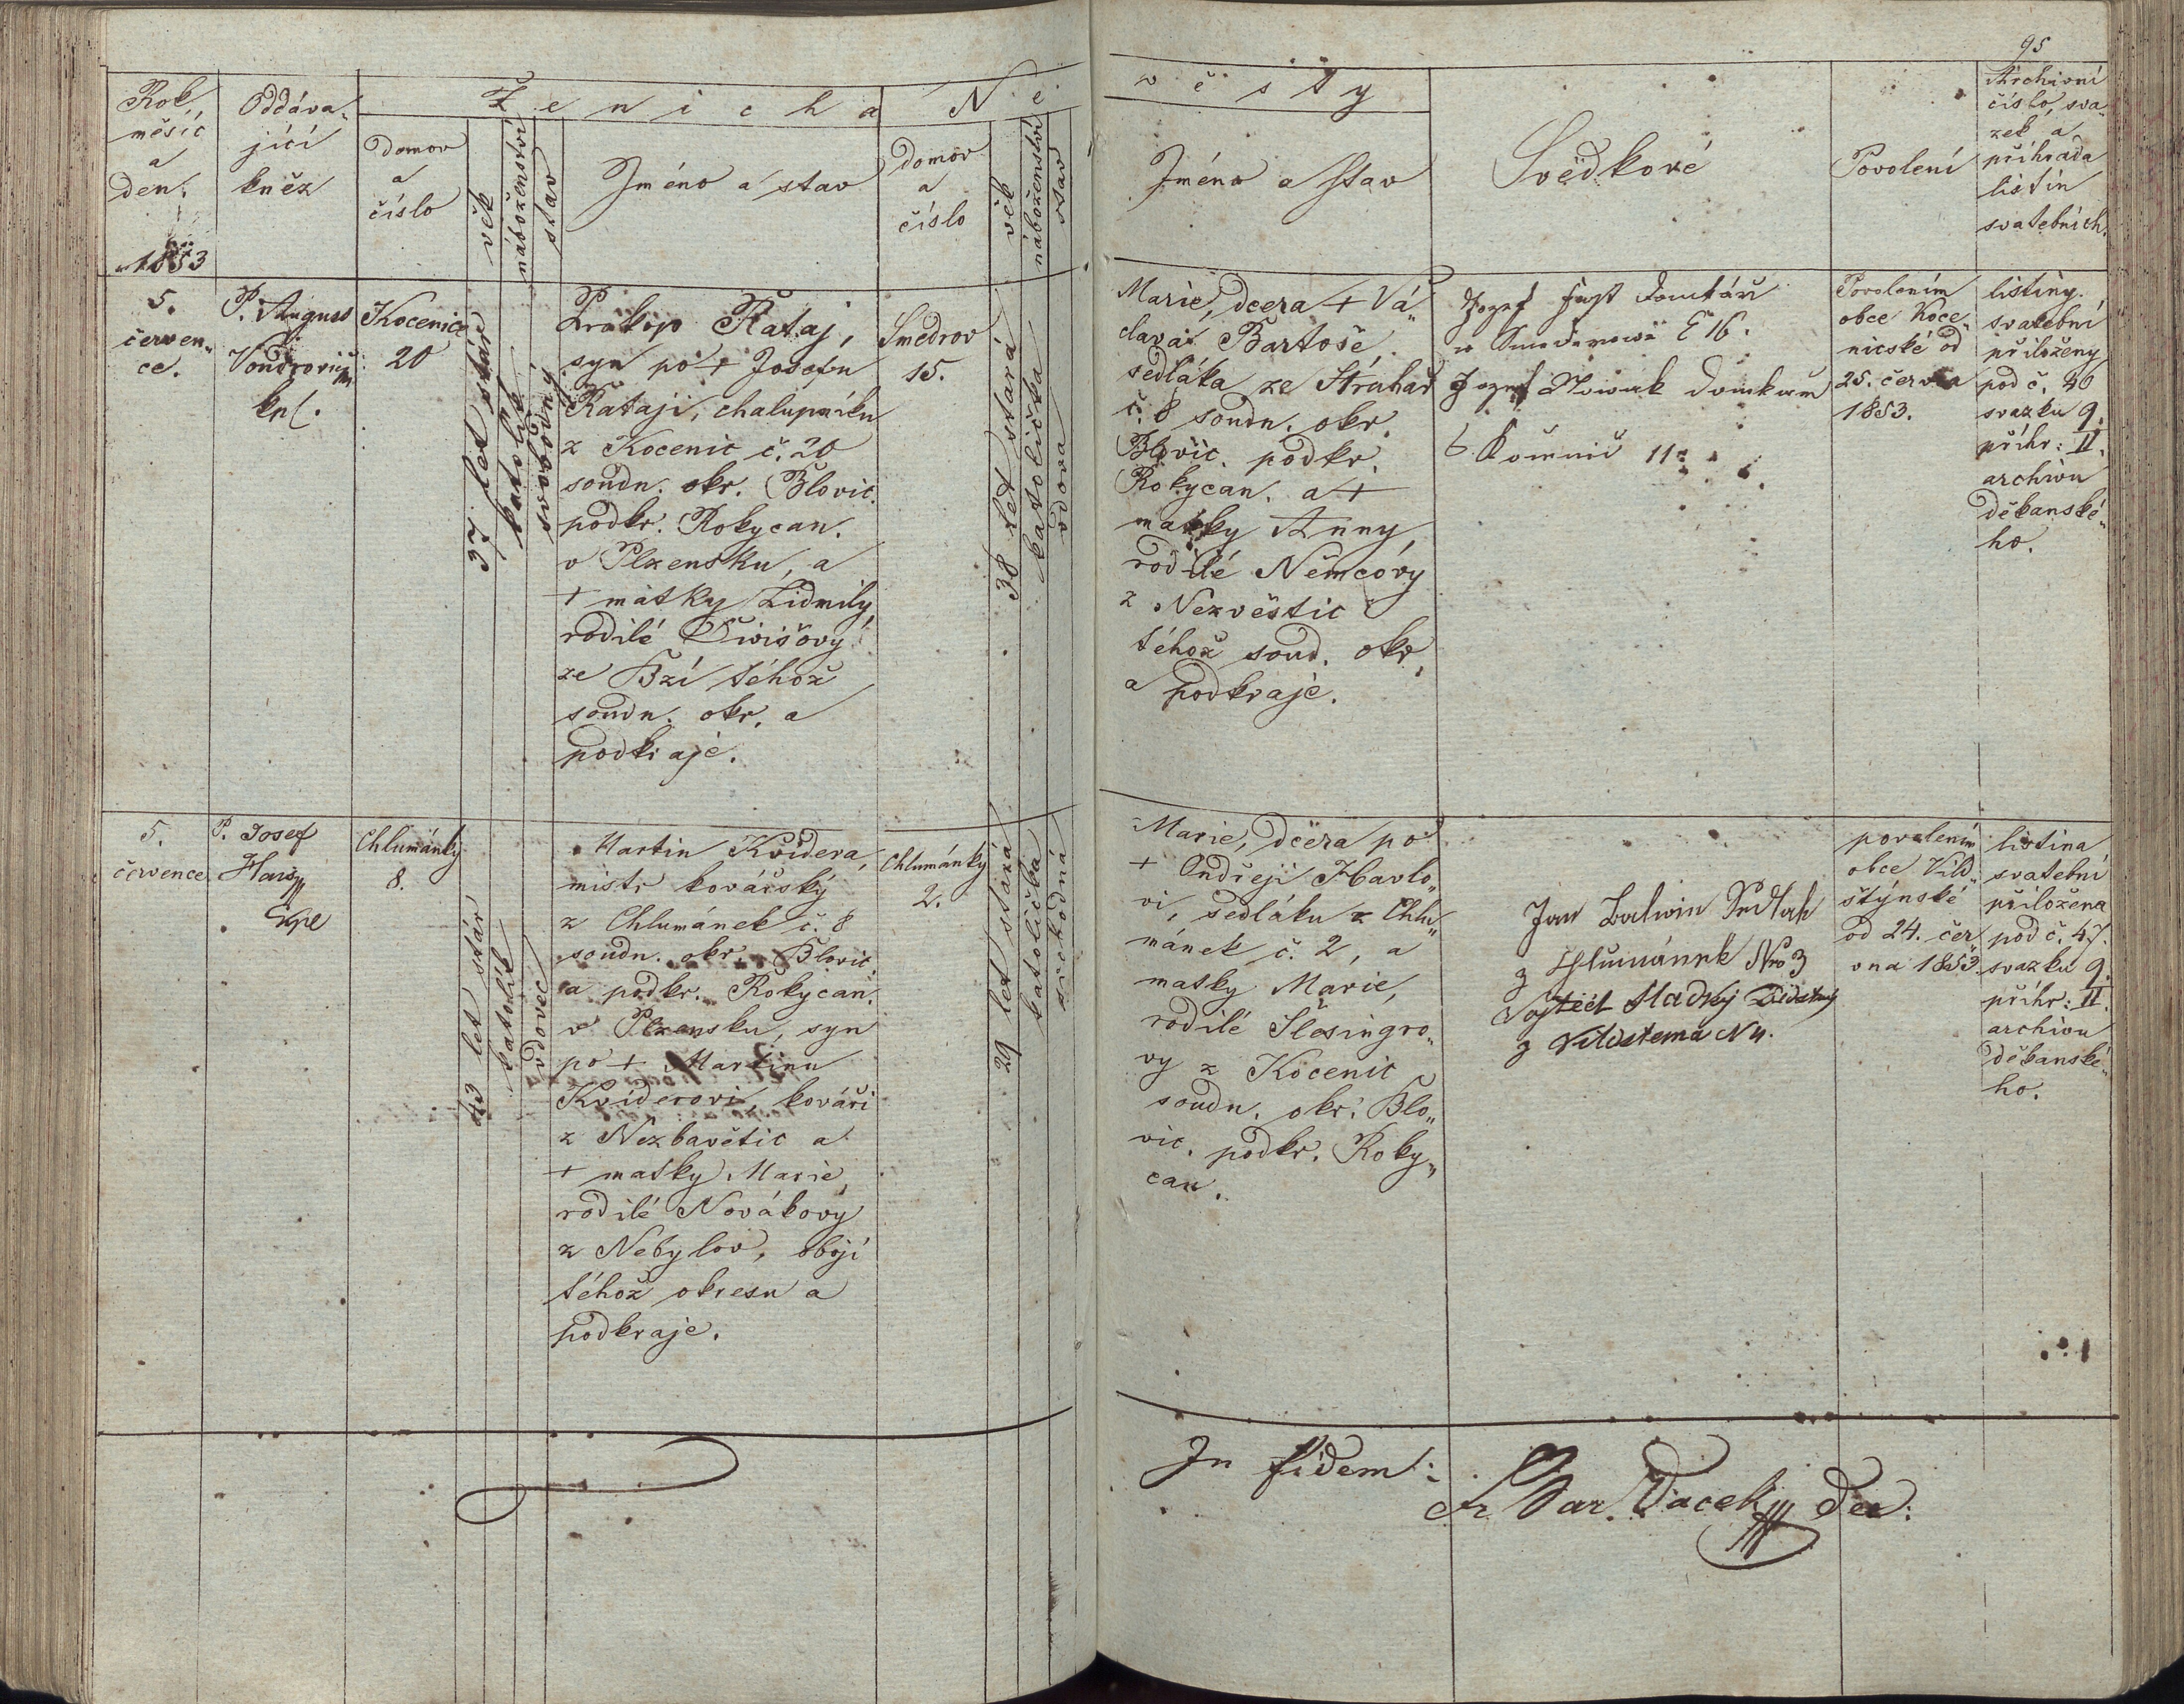 95
Rok,
měsíc
a
den.
1853
Oddáva-
jící
kněz
Ženicha
domov
a
číslo
věk
náboženství
stav
Jméno a stav
Ne
domov
a
číslo
věk
náboženství
stav
věsty
Jméno a stav
Svědkové
Povolení
Archivní
číslo, sva-
zek a
příhrada
listin
svatebních.
5.
červen-
ce.
P. August
Vondrovič
kpl.
Kocenice
20
37 let stár
katolík
svobodný
Prokop Rataj,
syn po + Josefu
Rataji, chalupníku
z Kocenic č. 20
soudn. okr. Blovic.
podkr. Rokycan.
v Plzensku, a
+ matky Lidmily,
rodilé
ze Bzí téhož
soudn. okr. a
podkraje.
Smedrov
15.
38 let stará
katolička
vdova
Marie, dcera + Vá-
clava Bartoše,
sedláka ze Struhař
č. 8 soudn. okr.
Blovic. podkr.
Rokycan. a +
matky Anny,
rodilé Němcovy
z Nezvěstic
téhož soud. okr.
a podkraje.
Jozef
w Č 16.
Jozef Nowak
11
Povolením
obce Koce-
nické od
25. června
1853.
listiny
svatební
přiloženy
pod č. 46
svazku 9.
příhr: II.
archivu
děkanské-
ho.
5.
července
P. Josef
Hais
Kpl
Chlumánky
8.
43 let stár
katolík
vdovec
Martin Kvídera,
mistr kovářský
z Chlumánek č. 8
soudn. okr. Blovic.
a podkr. Rokycan.
v Plzensku, syn
po + Martinu
Kviderovi, kováři
z Nezbavětic a
+ matky Marie,
rodilé Novákovy
z Nebylov, obojí
téhož okresu a
podkraje.
Chlumánky
2.
29 let stará
katolička
svobodná
Marie, dcera po
+ Ondřeji Havlo-
vi, sedláku z Chlu-
mánek č. 2, a
matky Marie,
rodilé Šlesingro-
vy z Kocenic
soudn. okr. Blo-
vic. podkr. Roky-
can.
Jan Balwin Sedlak
z Hlumánek Nro 3
Vojtěch Hladký
z N 4.
povolením
obce Vild-
štýnské
od 24. čer-
vna 1853.
listina
svatební
přiložena
pod č. 47.
svazku 9.
příhr: II.
archivu
děkanské-
ho.
In fidem:
Fr. Vacek